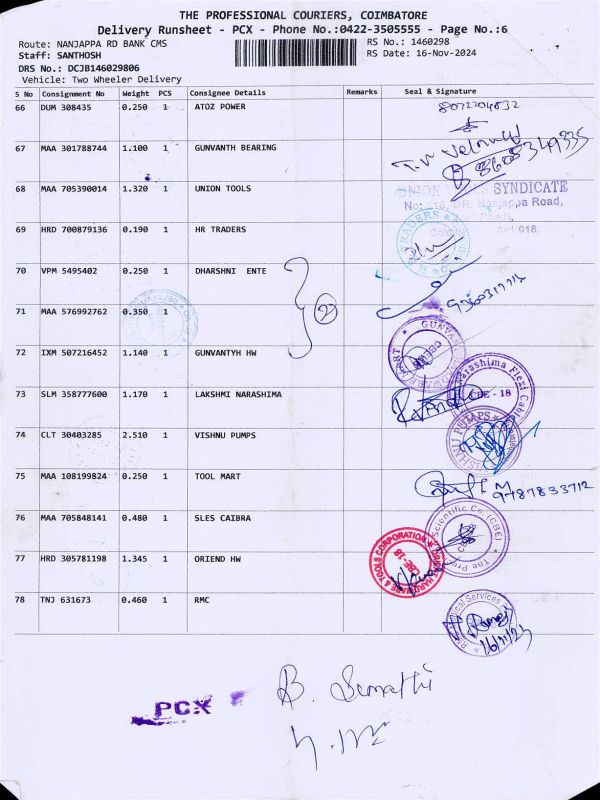 THE PROFESSIONAL COURIERS, COIMBATORE
Delivery Runsheet - PCX - Phone No.:0422-3505555 - Page No.:6
Route: NANJAPPA RD BANK CMS
RS No.: 1460298
Staff: SANTHOSH
RS Date: 16-Nov-2024
DRS No.: DCJB146029806
Vehicle: Two Wheeler Delivery
S No Consignment No Weight PCS Consignee Details Remarks Seal & Signature
66 DUM 308435 0.250 1 ATOZ POWER
67 MAA 301788744 1.100 1 GUNVANTH BEARING
68 MAA 705390014 1.320 1 UNION TOOLS
UNION SYNDICATE
Nanjappa Road,
69 HRD 700879136 0.190 1 HR TRADERS
TRADERS
70 VPM 5495402 0.250 1 DHARSHNI ENTE
2
71 MAA 576992762 0.350 1
72 IXM 507216452 1.140 1 GUNVANTYH HW
73 SLM 358777600 1.170 1 LAKSHMI NARASHIMA
Narashima Flexi
CBE - 18
74 CLT 30403285 2.510 1 VISHNU PUMPS
VISHNU PUMPS
75 MAA 108199824 0.250 1 TOOL MART
9787833712
76 MAA 705848141 0.480 1 SLES CAIBRA
Scientific Co. (CBE)
77 HRD 305781198 1.345 1 ORIEND HW
HARDWARE & TOOLS CORPORATION
CBE-18
78 TNJ 631673 0.460 1 RMC
Services
16/11/24
PCX
B. Sumathi